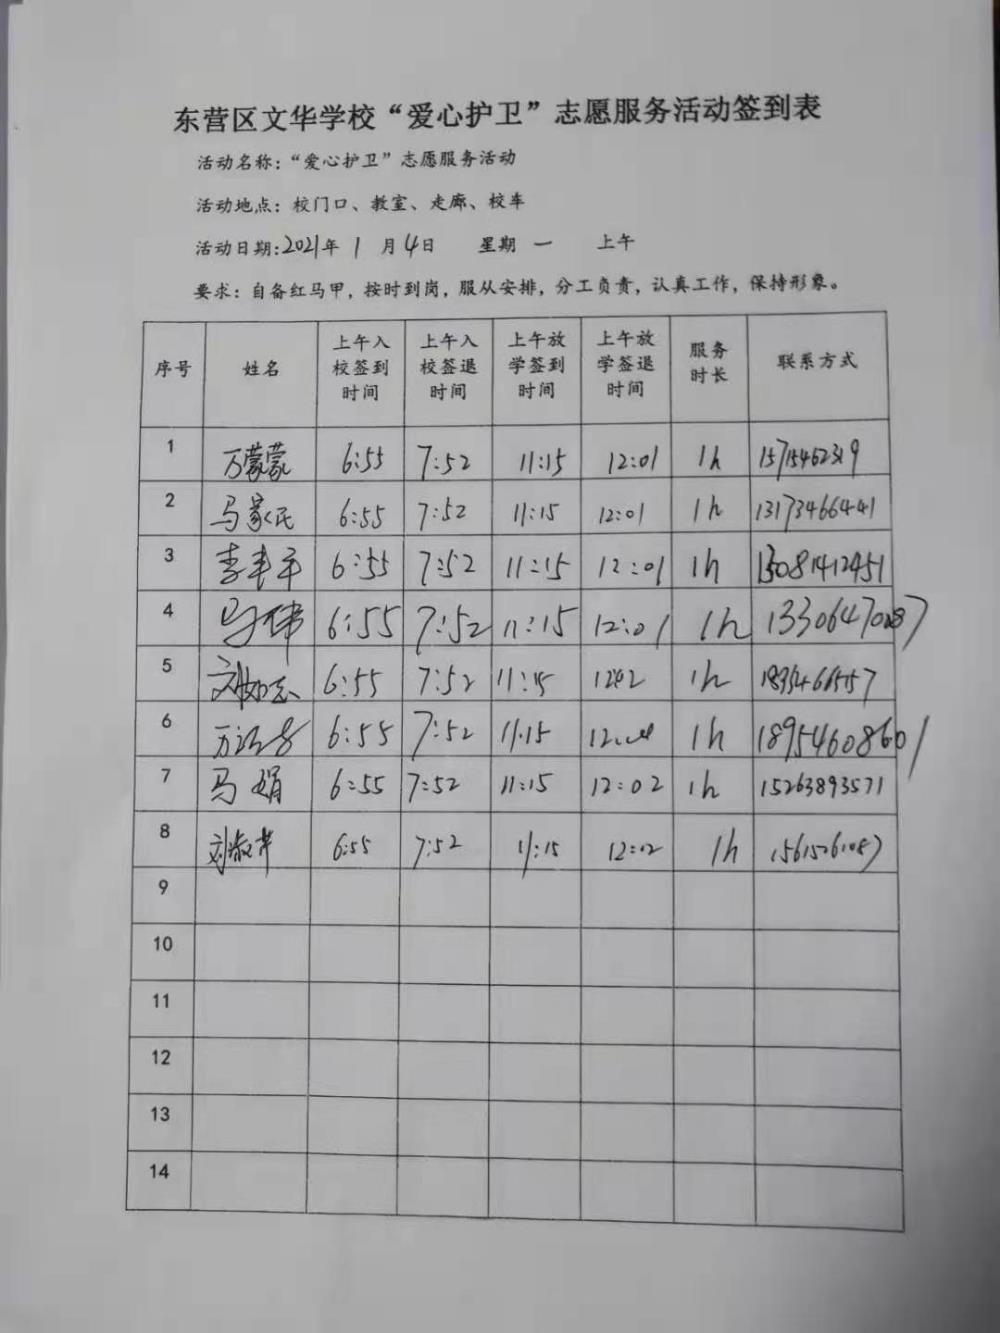 东营区文华学校“爱心护卫”志愿服务活动签到表
活动名称：“爱心护卫”志愿服务活动
活动地点：校门口、教室、走廊、校车
活动日期：2021年 1 月 4日 星期 一 上午
要求：自备红马甲，按时到岗，服从安排，分工负责，认真工作，保持形象。
序号 姓名 上午入校签到时间 上午入校签退时间 上午放学签到时间 上午放学签退时间 服务时长 联系方式
1 万蒙蒙 6:55 7:52 11:15 12:01 1h 15715462319
2 马家民 6:55 7:52 11:15 12:01 1h 13173466441
3 6:55 7:52 11:15 12:01 1h 15081412451
4 马伟 6:55 7:52 11:15 12:01 1h
5 6:55 7:52 11:15 1h
6 6:55 7:52 11:15 1h 18954608601
7 马娟 6:55 7:52 11:15 12:02 1h 15263893571
8 刘淑芹 6:55 7:52 11:15 12:02 1h
9
10
11
12
13
14